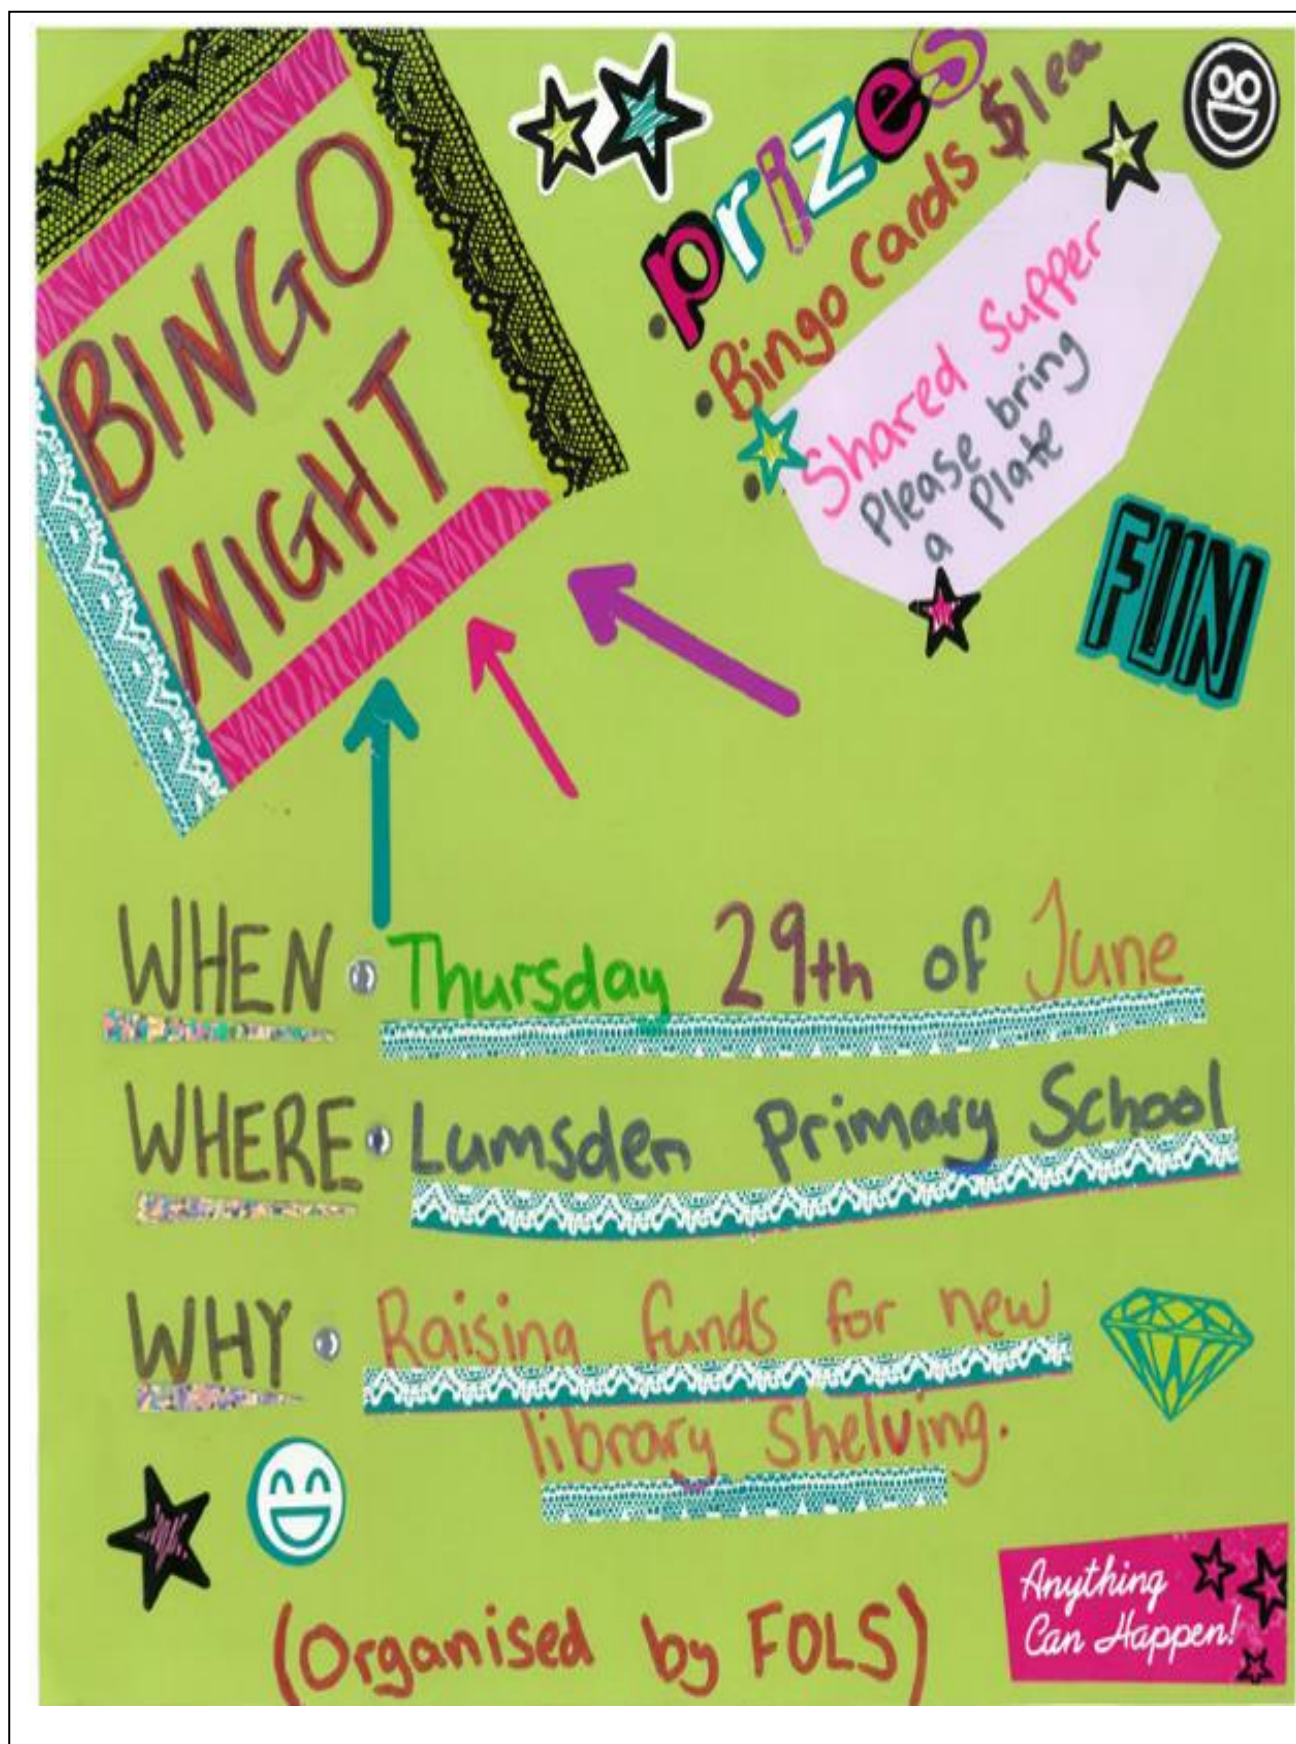 BINGO
NIGHT
prizes
Bingo Cards $1ea
Shared Supper
Please bring
a Plate
FUN
WHEN Thursday 29th of June
WHERE Lumsden Primary School
WHY Raising funds for new
library Shelving.
(Organised by FOLS)
Anything
Can Happen!